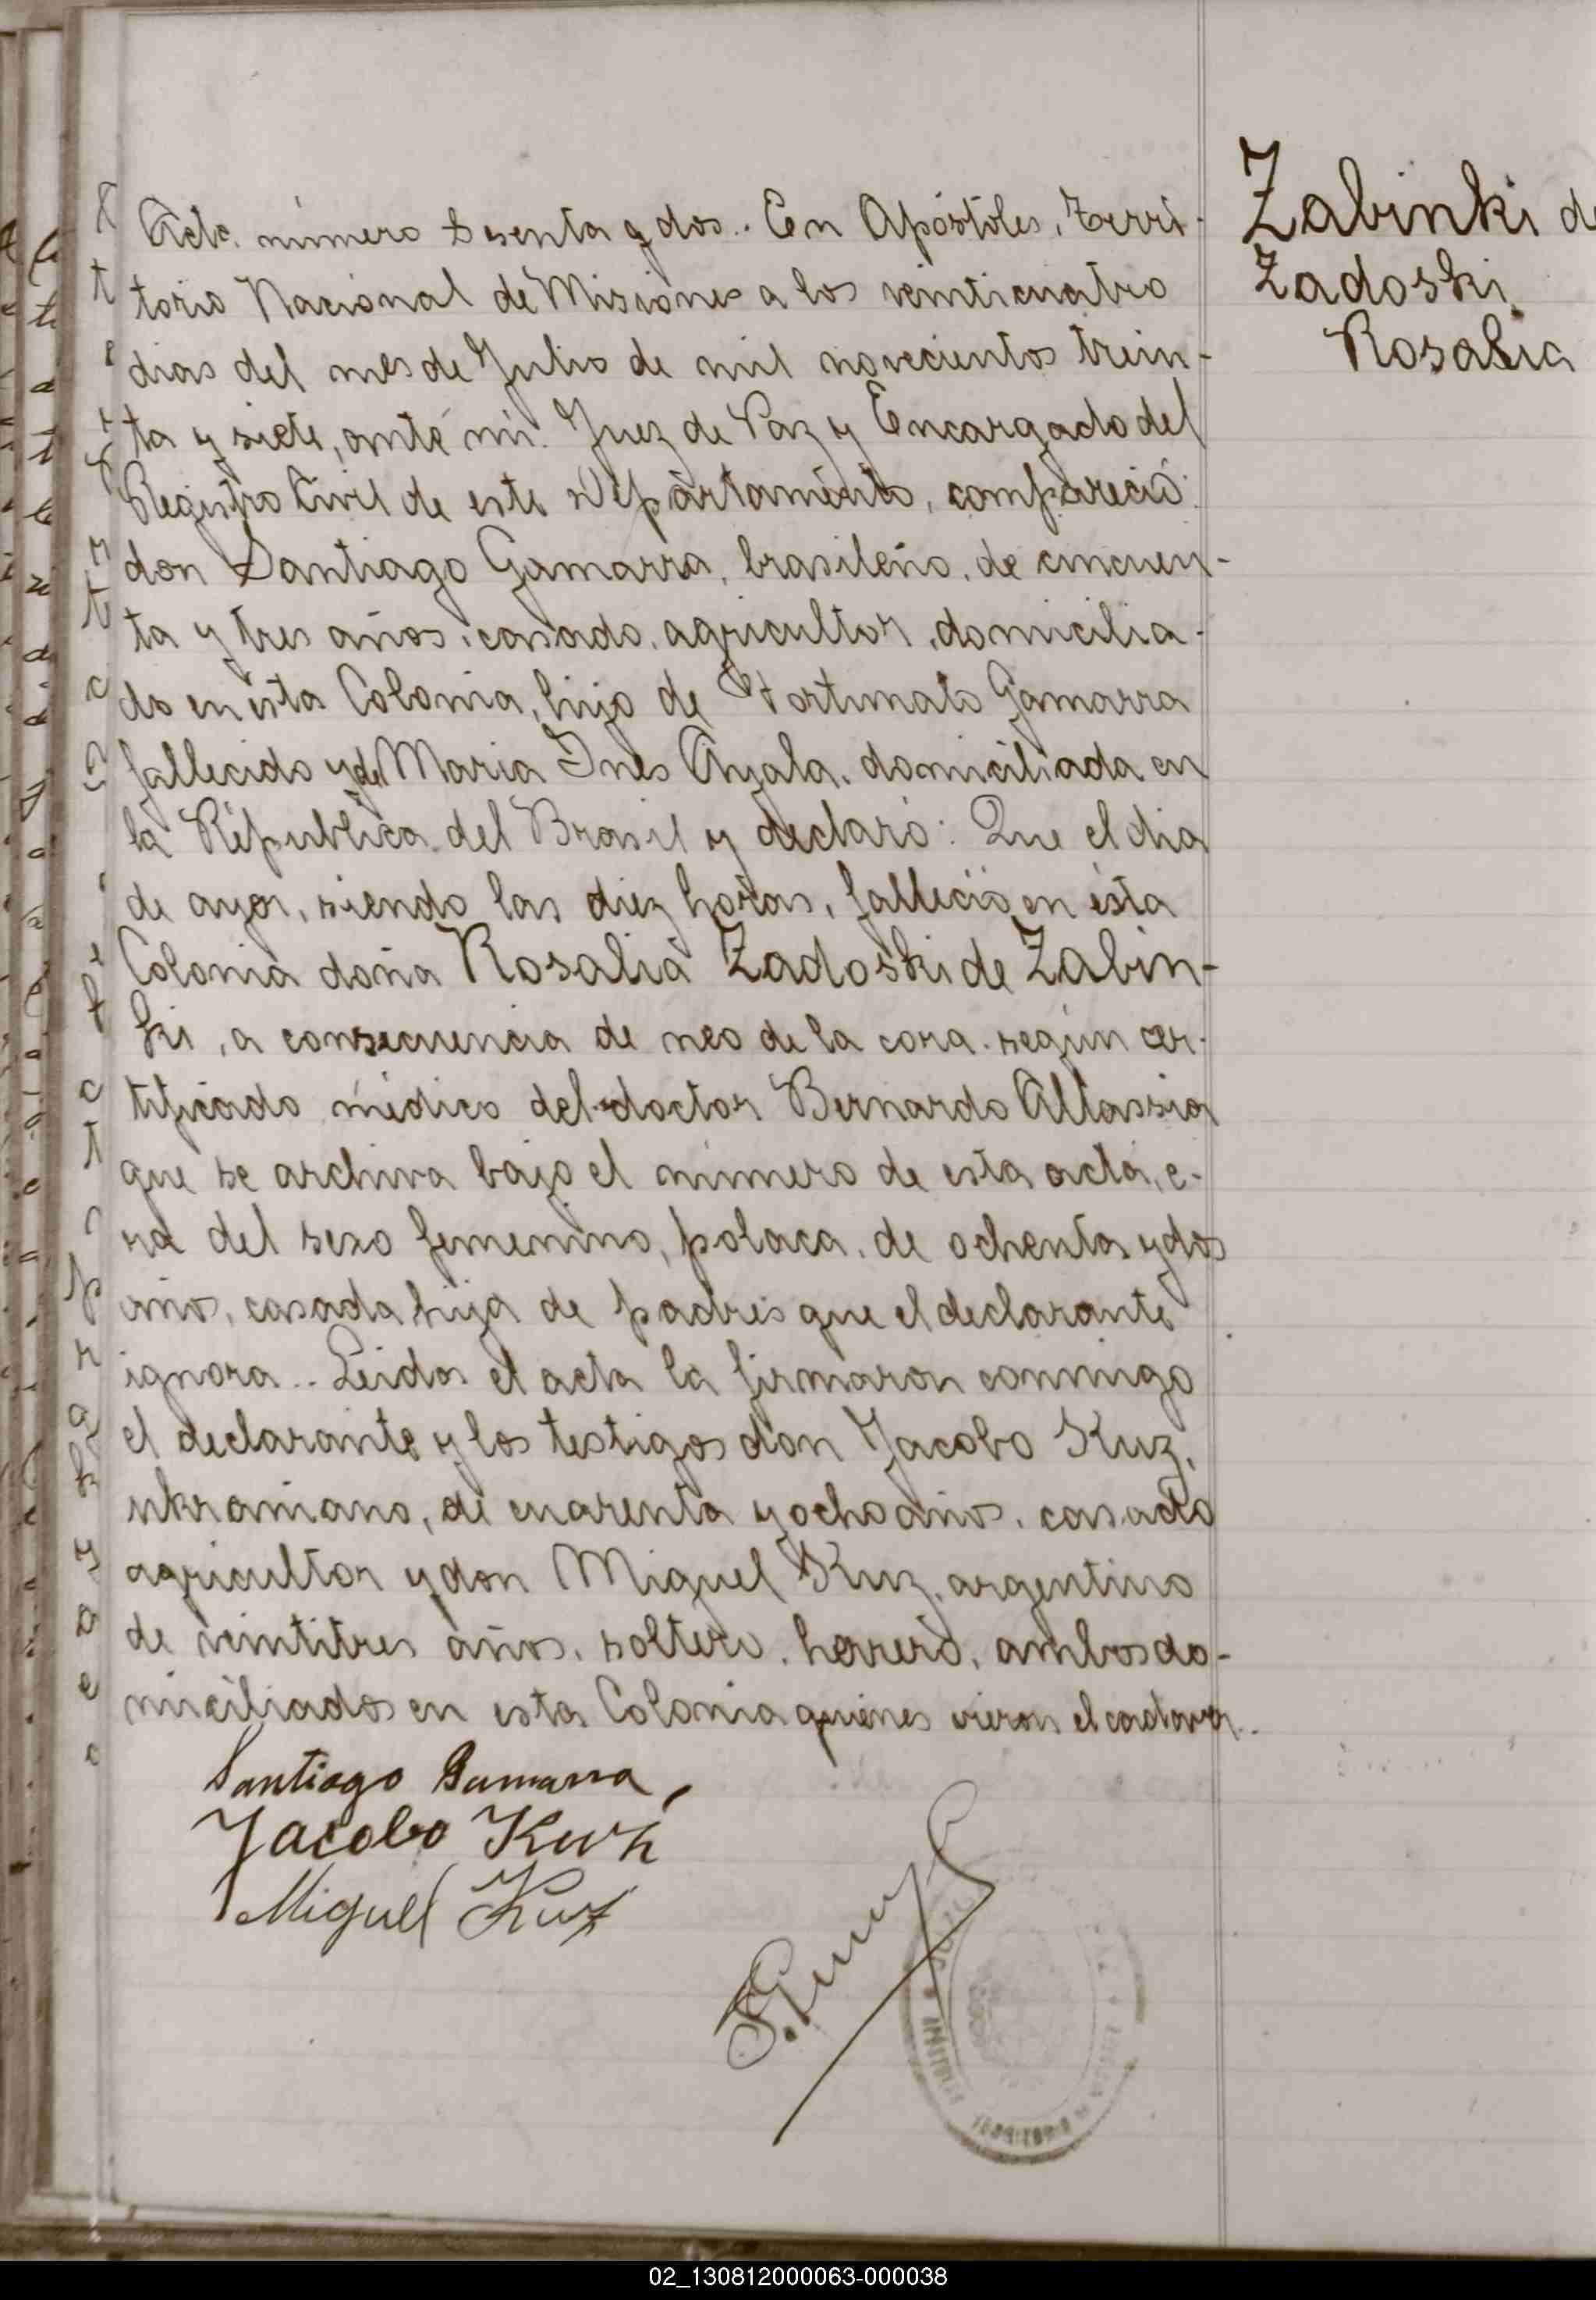 Zabinki de
Zadoski
Rosalia
Acta número sesenta y dos.. En Apóstoles, Terri-
torio Nacional de Misiones a los veinticuatro
dias del mes de Julio de mil novecientos trein-
ta y siete, ante mi. Juez de Paz y Encargado del
Registro Civil de este Departamento, compareció:
don Santiago Gamarra, brasileño, de cincuen-
ta y tres años, casado, agricultor, domicilia-
do en esta Colonia, hijo de Fortunato Gamarra
fallecido y de Maria Ines Ayala, domiciliada en
la República del Brasil y declaró: Que el dia
de ayer, siendo las diez horas, falleció en ésta
Colonia doña Rosalia Zadoski de Zabin-
ki, a consecuencia de neo de la cara según cer-
tificado médico del doctor Bernardo Altassia
que se archiva bajo el número de esta acta, e-
ra del sexo femenino, polaca, de ochenta y dos
años, casada hija de padres que el declarante
ignora.. Leida el acta la firmaron conmigo
el declarante y los testigos don Jacobo Kuz,
ukraniano, de cuarenta y ocho años, casado
agricultor y don Miguel Kuz, argentino
de veintitres años, soltero, herrero, ambos do-
miciliados en esta Colonia quienes vieron el cadaver..
Santiago Gamarra,
Jacobo Kuz
Miguel Kuz
02_130812000063-000038